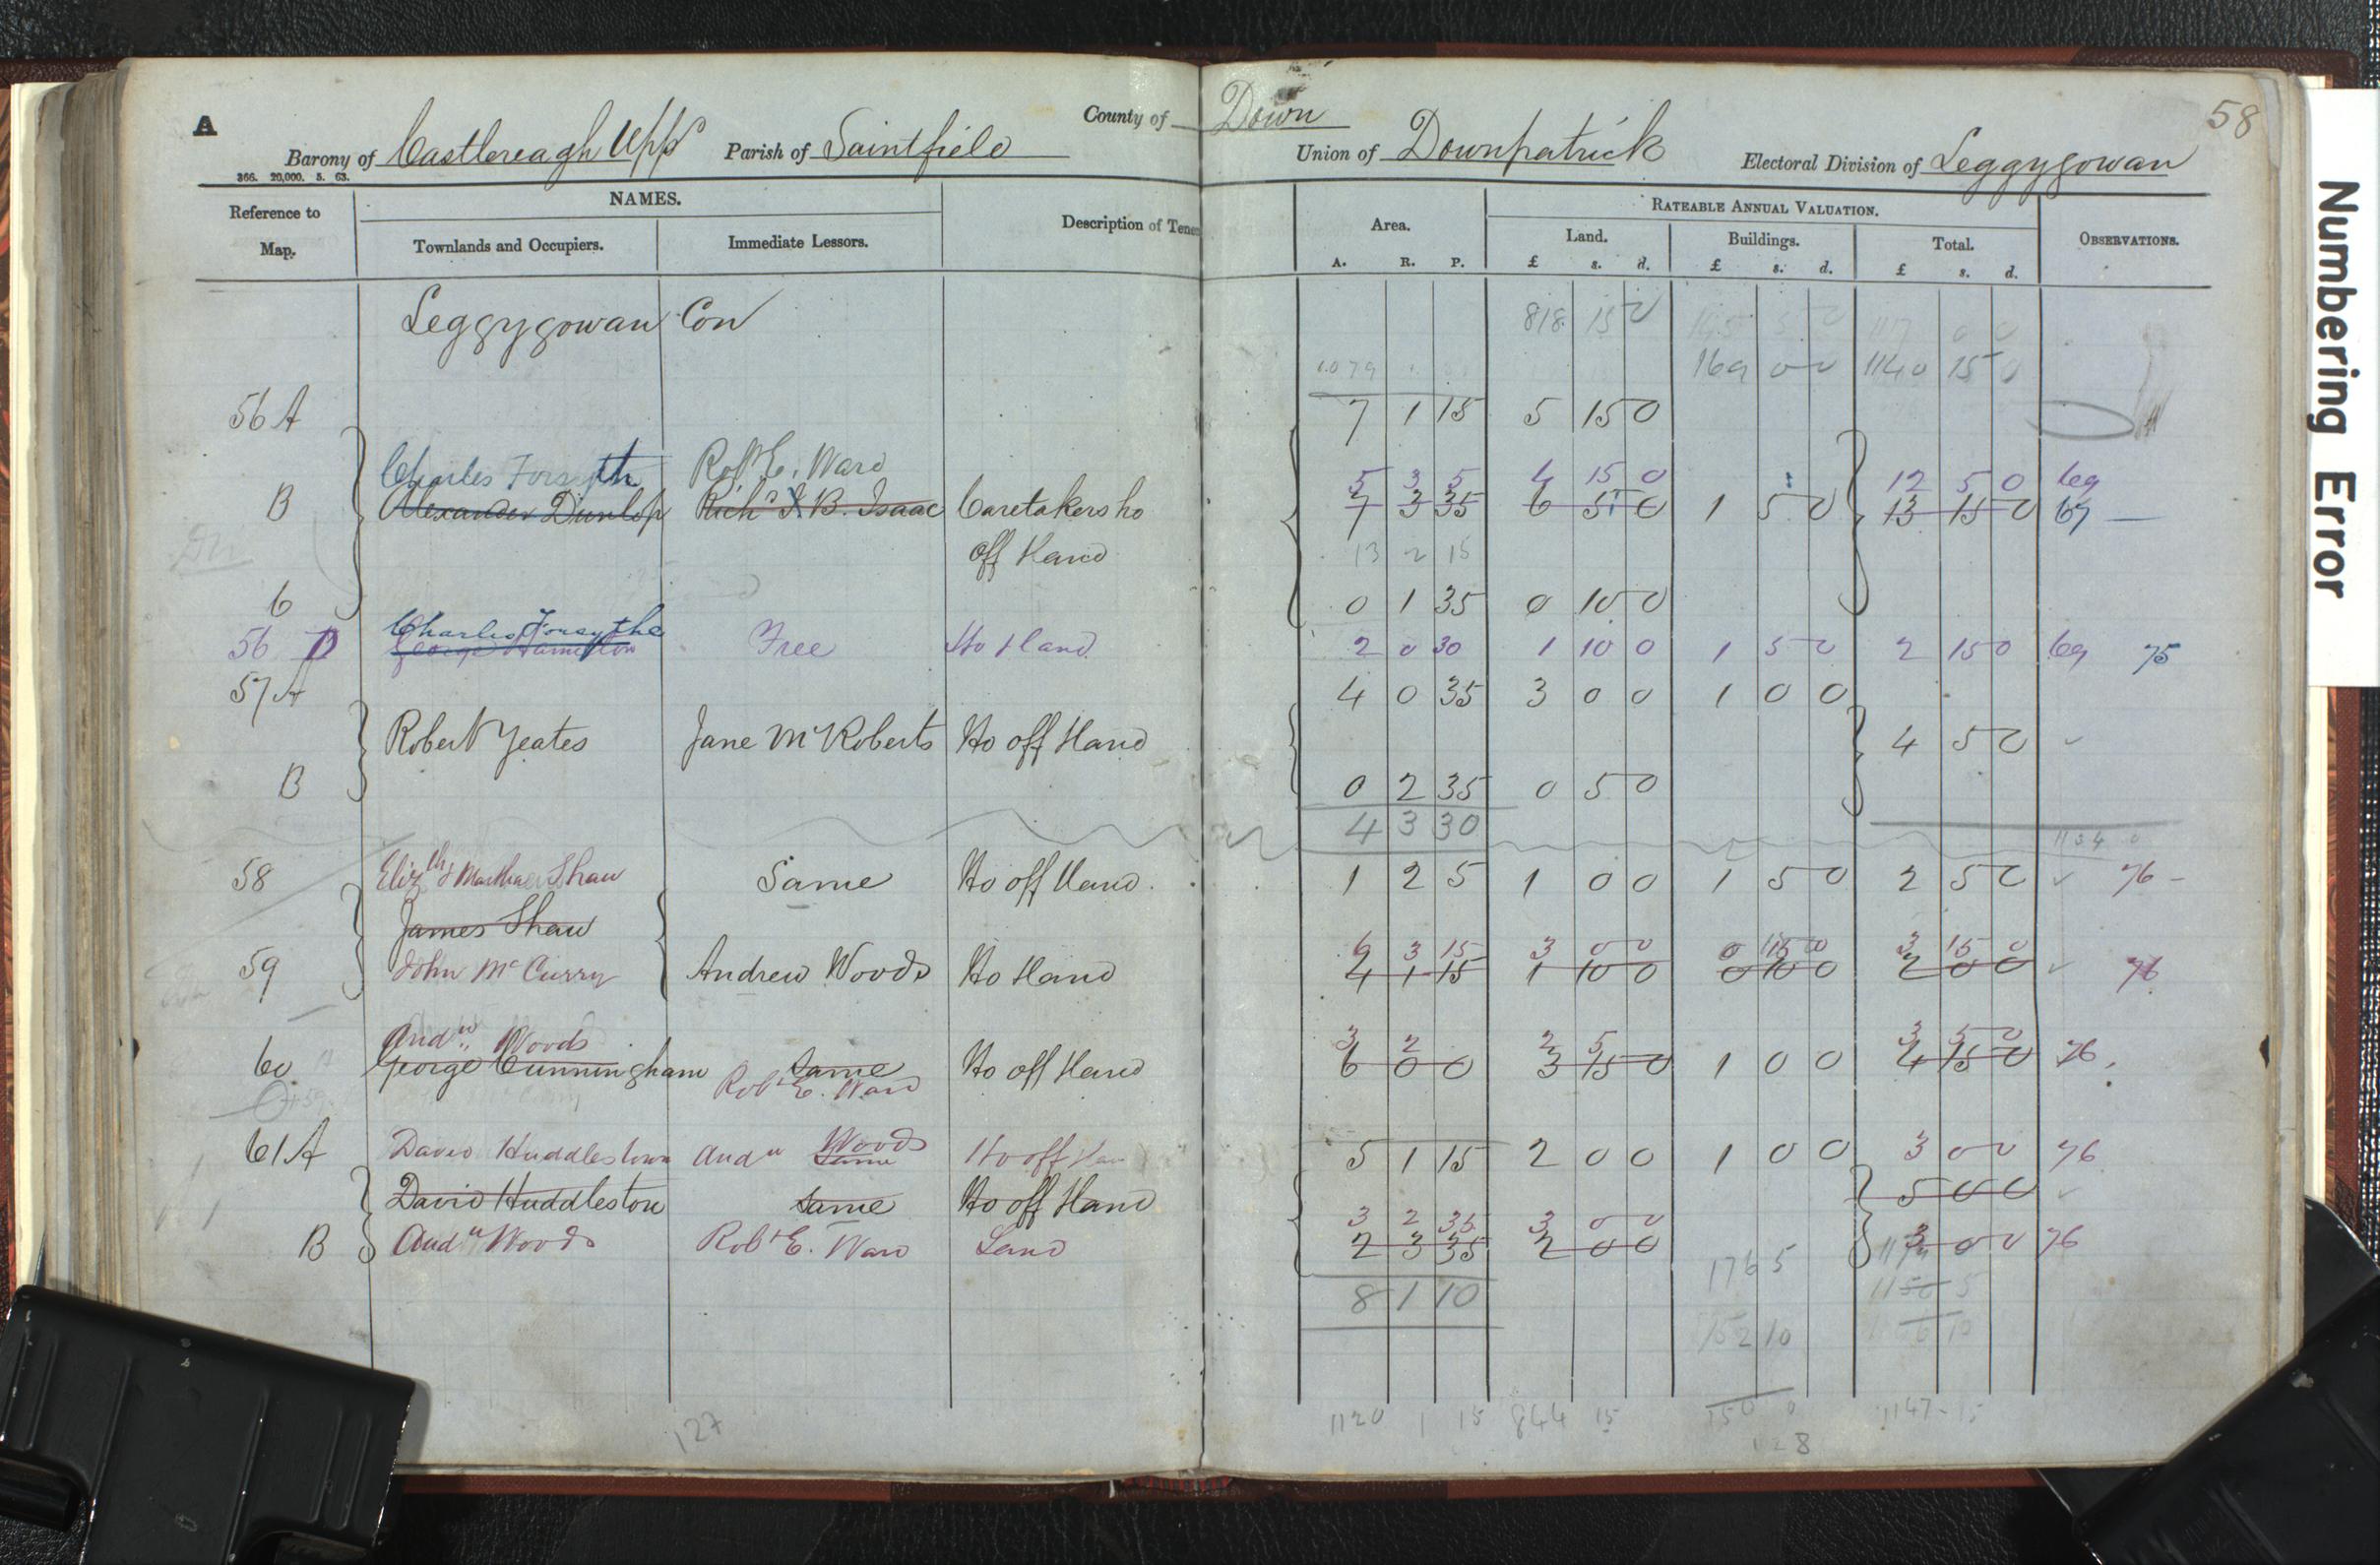 58
A
County of Down
Barony of Castlereagh Uppr Parish of Saintfield Union of Downpatrick Electoral Division of Leggygowan
366. 20,000. 5. 63.
Reference to Map.
NAMES.
Townlands and Occupiers.
Immediate Lessors.
Description of Tenem
Area.
A. R. P.
RATEABLE ANNUAL VALUATION.
Land.
£ s. d.
Buildings.
£ s. d.
Total.
£ s. d.
OBSERVATIONS.
Leggygowan Con 818 15 0
1079 169 0 0 1140 15 0
56 A 7 1 15 5 15 0
Charles Forsyth Robt E. Ward 5 3 5 4 15 0 12 5 0 69
B Alexander Dunlop Richd I B. Isaac Caretakers ho 7 3 35 6 5 0 1 5 0 13 15 0 67
off Land 13 2 15
C 0 1 35 0 10 0
Charles Forsythe
56 D George Hamilton Free Ho Land 2 0 30 1 10 0 1 5 0 2 15 0 69 75
57 A 4 0 35 3 0 0 1 0 0
Robert Yeates Jane McRoberts Ho off Land 4 5 0
B 0 2 35 0 5 0
4 3 30
1134 0
58 Elizth & Martha Shaw Same Ho off Land 1 2 5 1 0 0 1 5 0 2 5 0 76
James Shaw
6 3 15 3 0 0 0 15 0 3 15 0
59 John McCurry Andrew Woods Ho Land 4 1 15 1 10 0 0 10 0 2 0 0 76
Andw Woods 3 2 2 5 3 5 0
60 George Cunningham Same Ho off Land 6 0 0 3 15 0 1 0 0 4 15 0 76
Robt E. Ward
Woods
61 A David Huddlestown Andw Same Ho off Lan 5 1 15 2 0 0 1 0 0 3 0 0 76
David Huddleston Same Ho off Land 5 0 0
3 2 35 3 0 0
B Andw Woods Robt E. Ward Land 2 3 35 2 0 0 3 0 0 76
176 5
8 1 10 1150 5
152 10
1120 1 15 844 15 150 0 1147 15
127
128
Numbering Error